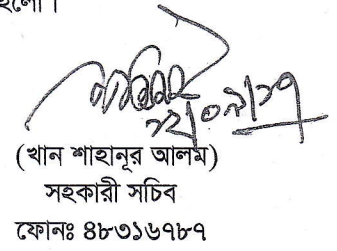 হলো।
(খান শাহানূর আলম)
সহকারী সচিব
ফোনঃ ৪৮৩১৬৭৮৭